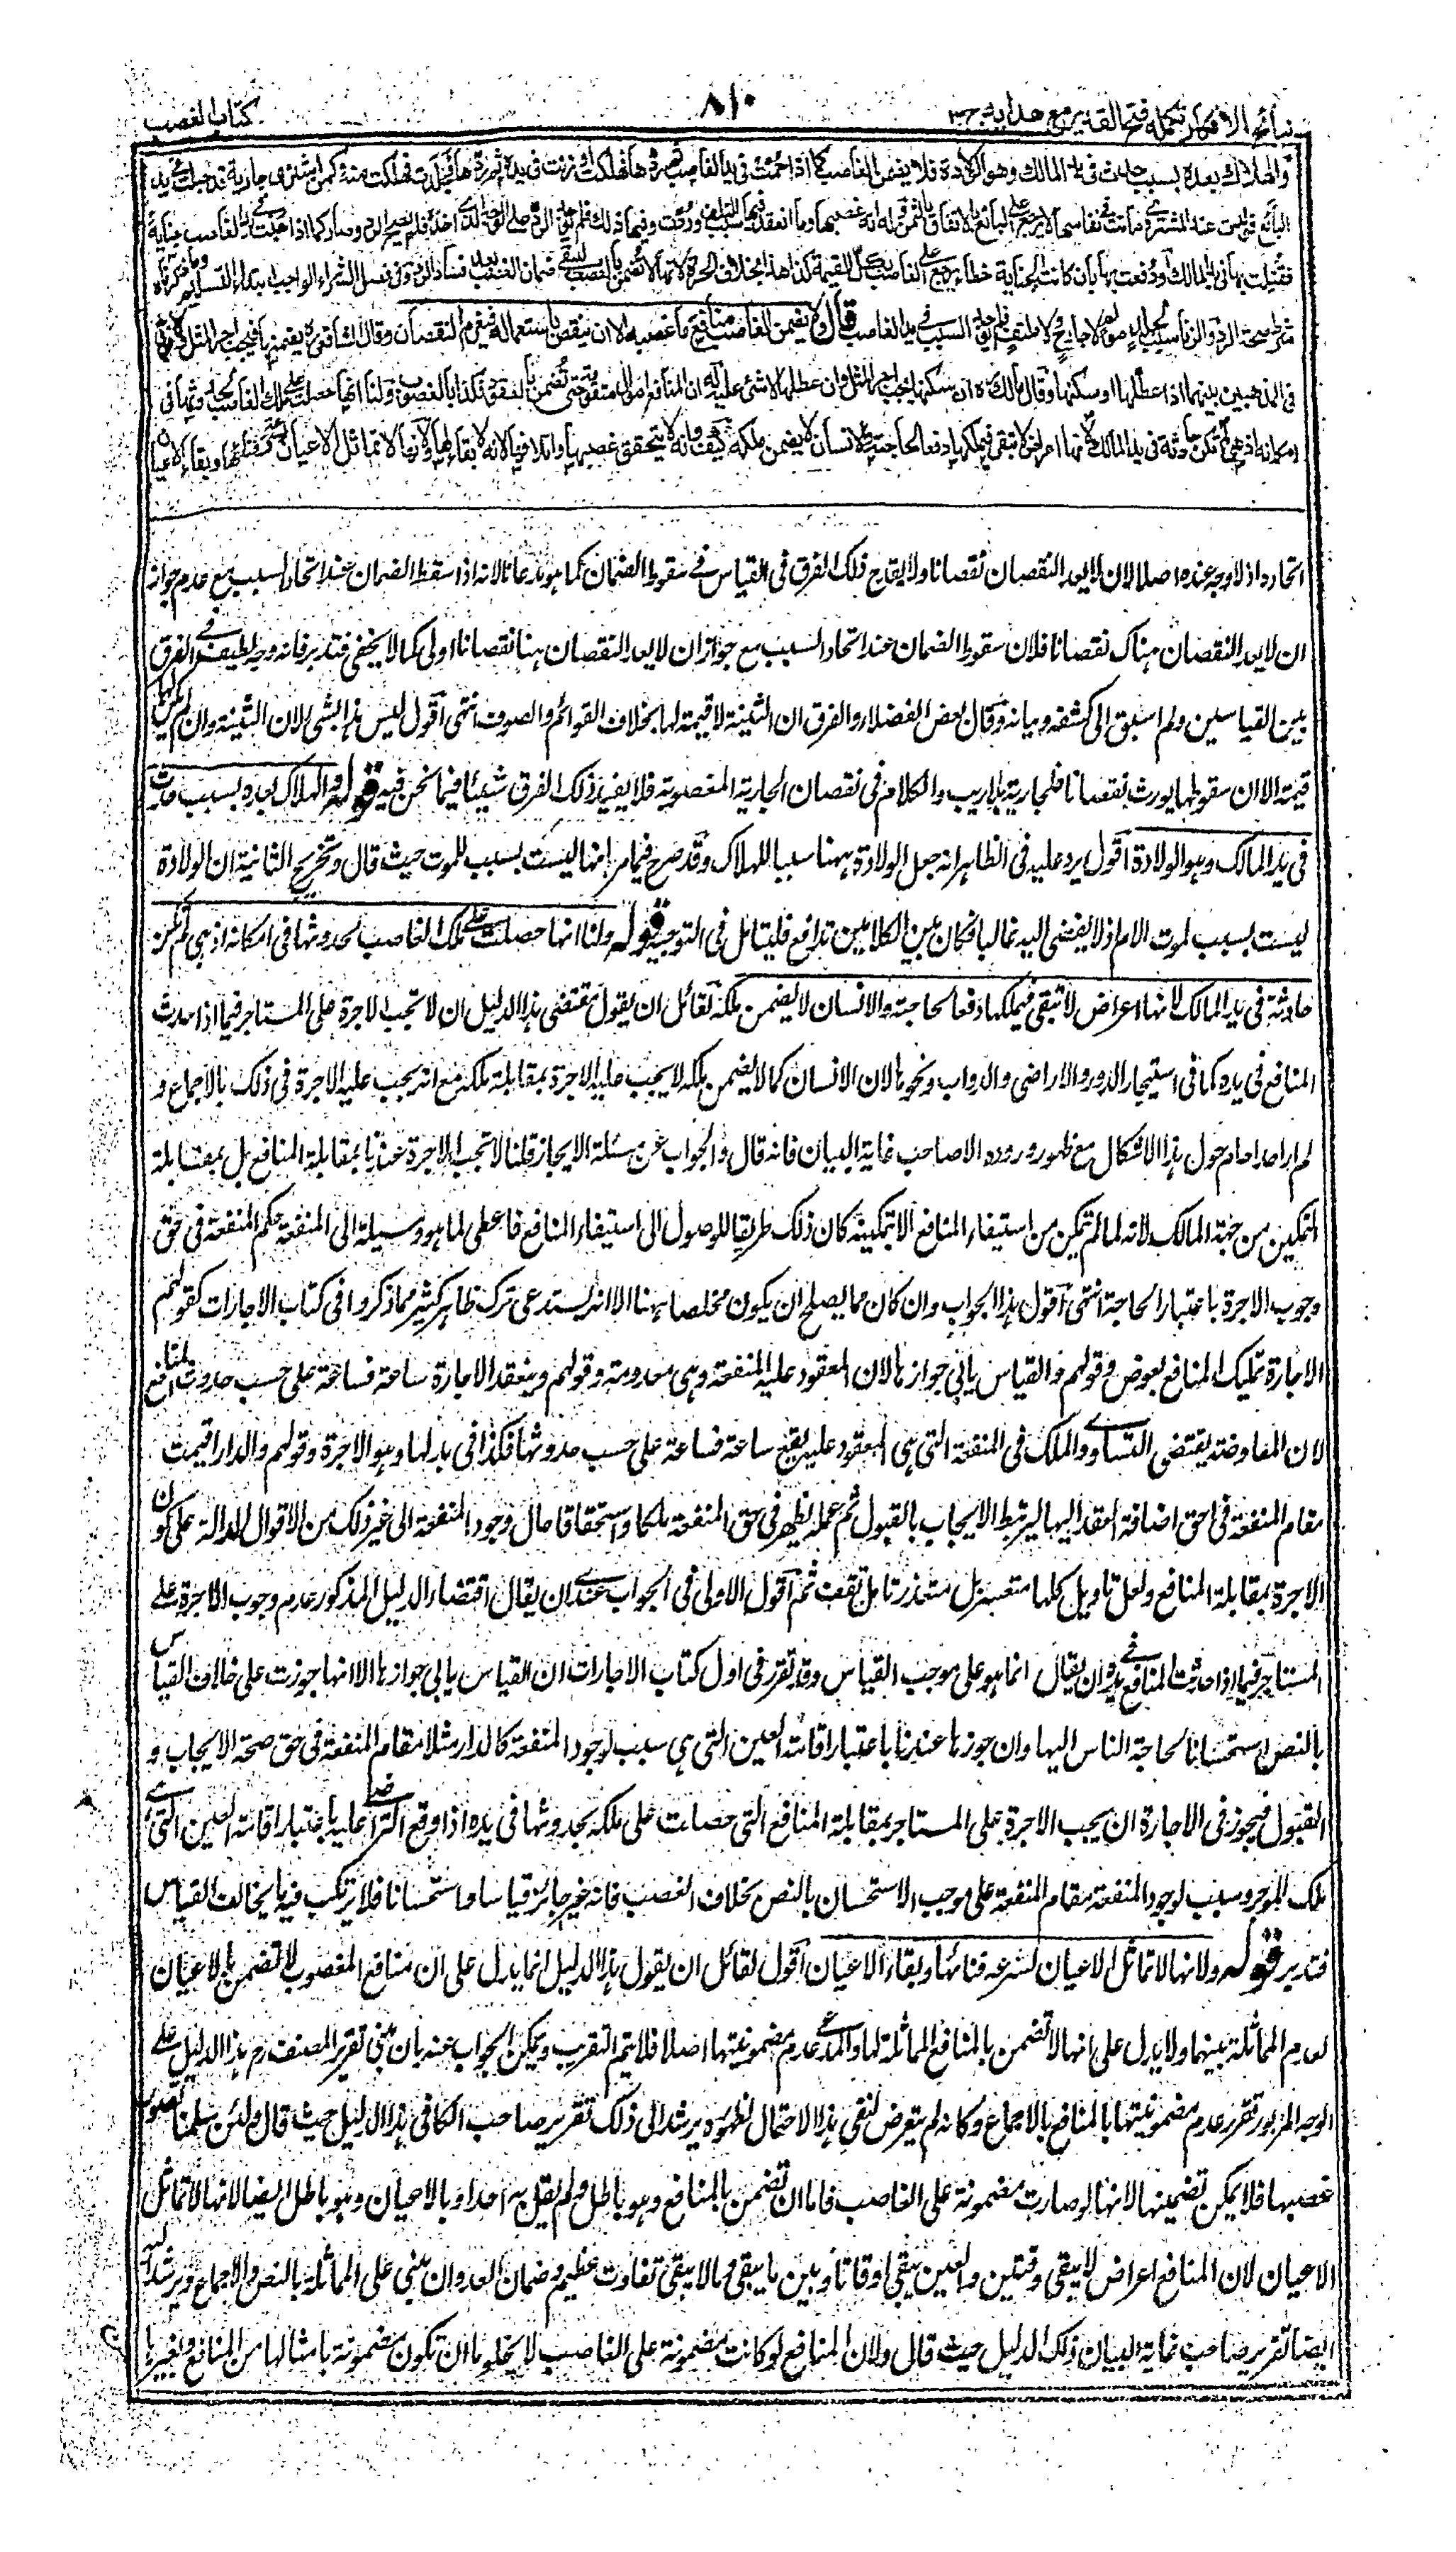 نتائج الافكار تكمله فتح القدير مع هدايه ج ٣
٨١٠
كتاب الغصب
والهلاك بعده بسبب حدث في يد المالك وهو الولادة فلا يضمن الغاصب كما اذا حمت في يد الغاصب فردها فهلكت او زنت في يده ثم ردها فجلدت فهلكت منه وكمن اشترى جارية قد حبلت عند
البائع فولدت عند المشتري وماتت في نفاسها لا يرجع على البائع بالاتفاق بالثمن وله انه غصبها وما انعقد فيها سبب التلف وردت وفيها ذلك فلم يوجد الرد على الوجه الذي اخذه فلم يصح الرد وصار كما اذا جنت في يد الغاصب جناية
فقتلت بها في يد المالك او دفعت بها بان كانت الجناية خطاء يرجع على الغاصب بكل القيمة كذا هذا بخلاف الحرة لانها لا تضمن بالغصب ليبقى ضمان الغصب بعد فساد الرد وفي فصل الشراء الواجب ابتداء التسليم وما ذكرناه
شرط صحة الرد والزنا سبب لجلد مولم لا جارح ولا متلف فلم يوجد السبب في يد الغاصب قال ولا يضمن الغاصب منافع ما غصبه الا ان ينقص باستعماله فيغرم النقصان وقال الشافعي ره يضمنها فيجب اجر المثل ولا فرق
في المذهبين بينهما اذا عطلها او سكنها وقال مالك ره ان سكنها يجب اجر المثل وان عطلها لا شئ عليه له ان المنافع اموال متقومة حتى تضمن بالعقود فكذا بالغصوب ولنا انها حصلت على ملك الغاصب لحدوثها في
امكانه اذ هي لم تكن حادثة في يد المالك لانها اعراض لا تبقى فيملكها دفعا لحاجته والانسان لا يضمن ملكه كيف وانه لا يتحقق غصبها واتلافها لانه لا بقاء لها ولانها لا تماثل الاعيان لسرعة فنائها وبقاء الاعيان
اتحاده اذ لا وجه عنده اصلا لان لا يعد النقصان نقصانا ولا يقدح ذلك الفرق في القياس في سقوط الضمان كما هو مدعانا لانه اذا سقط الضمان عند اتحاد السبب مع عدم جواز
ان لا يعد النقصان هناك نقصانا فلان سقوط الضمان عند اتحاد السبب مع جواز ان لا يعد النقصان ههنا نقصانا اولى كما لا يخفى فتدبر فانه وجه لطيف في الفرق
بين القياسين ولم اسبق الى كشفه وبيانه وقال بعض الفضلاء والفرق ان الثنية لا قيمة لها بخلاف القوائم والصوف انتهى اقول ليس هذا بشئ لان الثنية وان لم يكن لها
قيمة الا ان سقوطها يورث نقصانا في الجارية بلا ريب والكلام في نقصان الجارية المغصوبة فلا يفيد ذلك الفرق شيئا فيما نحن فيه قوله والهلاك بعده بسبب حادث
في يد المالك وهو الولادة اقول يرد عليه في الظاهر انه جعل الولادة ههنا سببا للهلاك وقد صرح فيما مر انها ليست بسبب للموت حيث قال وتخريج الثانية ان الولادة
ليست بسبب لموت الام اذ لا يفضي اليه غالبا فكان بين الكلامين تدافع فليتأمل في التوجيه قوله ولنا انها حصلت على ملك الغاصب لحدوثها في امكانه اذ هي لم تكن
حادثة في يد المالك لانها اعراض لا تبقى فيملكها دفعا لحاجته والانسان لا يضمن ملكه لقائل ان يقول مقتضى هذا الدليل ان لا تجب الاجرة على المستاجر فيما اذا حدث
المنافع في يده كما في استيجار الدور والاراضي والدواب ونحوها لان الانسان كما لا يضمن ملكه لا يجب عليه الاجرة بمقابلة ملكه مع انه يجب عليه الاجرة في ذلك بالاجماع و
لم ار احدا حام حول هذا الاشكال مع ظهور وروده الا صاحب غاية البيان فانه قال والجواب عن مسئلة الايجار قلنا لا تجب الاجرة عندنا بمقابلة المنافع بل بمقابلة
التمكين من جهة المالك لانه لما لم يتمكن من استيفاء المنافع الا بتمكينه كان ذلك طريقا للوصول الى استيفاء المنافع فاعطى لما هو وسيلة الى المنفعة حكم المنفعة في حق
وجوب الاجرة باعتبار الحاجة انتهى اقول هذا الجواب وان كان مما يصلح ان يكون مخلصا ههنا الا انه يستدعي ترك ظاهر كثير مما ذكروا في كتاب الاجارات كقولهم
الاجارة تمليك المنافع بعوض وقولهم والقياس يابى جوازها لان المعقود عليه المنفعة وهي معدومة وقولهم وينعقد الاجارة ساعة فساعة على حسب حدوث المنافع
لان المعاوضة يقتضي التساوي والملك في المنفعة التي هي المعقود عليه يقع ساعة فساعة على حسب حدوثها فكذا في بدلها وهو الاجرة وقولهم والدار اقيمت
مقام المنفعة في حق اضافة العقد اليها ليرتبط الايجاب بالقبول ثم عمله يظهر في حق المنفعة ملكا واستحقاقا حال وجود المنفعة الى غير ذلك من الاقوال الدالة على كون
الاجرة بمقابلة المنافع ولعل تاويل كلها متعسر بل متعذر تامل تقف ثم اقول الاولى في الجواب عندي ان يقال اقتضاء الدليل المذكور عدم وجوب الاجرة على
المستاجر فيما اذا حدثت المنافع في يده ان يقال انما هو على موجب القياس وقد تقرر في اول كتاب الاجارات ان القياس يابى جوازها الا انها جوزت على خلاف القياس
بالنص استحسانا لحاجة الناس اليها وان جوزها عندنا باعتبار اقامة العين التي هي سبب لوجود المنفعة كالدار مثلا مقام المنفعة في حق صحة الايجاب و
القبول فيجوز في الاجارة ان يجب الاجرة على المستاجر بمقابلة المنافع التي حصلت على ملكه بحدوثها في يده اذا وقع التراضي عليه باعتبار اقامة العين التي هي
ملك الموجر وسبب لوجود المنفعة مقام المنفعة على موجب الاستحسان بالنص بخلاف الغصب فانه غير جائز قياسا واستحسانا فلا يرتكب فيه ما يخالف القياس
فتدبر قوله ولانها لا تماثل الاعيان لسرعة فنائها وبقاء الاعيان اقول لقائل ان يقول هذا الدليل انما يدل على ان منافع المغصوب لا تضمن بالاعيان
لعدم المماثلة بينهما ولا يدل على انها لا تضمن بالمنافع المماثلة لها والمدعى عدم مضمونيتها اصلا فلا يتم التقريب ويمكن الجواب عنه بان مبنى تقرير المصنف رح هذا الدليل على
الوجه المزبور تقرر عدم مضمونيتها بالمنافع بالاجماع وكانه لم يتعرض لنفي هذا الاحتمال لظهوره يرشد الى ذلك تقرير صاحب الكافي هذا الدليل حيث قال ولئن سلمنا تصور
غصبها فلا يمكن تضمينها لانها لو صارت مضمونة على الغاصب فاما ان تضمن بالمنافع وهو باطل ولم يقل به احد او بالاعيان وهو باطل ايضا لانها لا تماثل
الاعيان لان المنافع اعراض لا يبقى وقتين والعين يبقى اوقاتا وبين ما يبقى وما لا يبقى تفاوت عظيم وضمان العدوان مبني على المماثلة بالنص والاجماع ويرشد اليه
ايضا تقرير صاحب غاية البيان ذلك الدليل حيث قال ولان المنافع لو كانت مضمونة على الغاصب لا يخلو اما ان تكون مضمونة بامثالها من المنافع او بغيرها